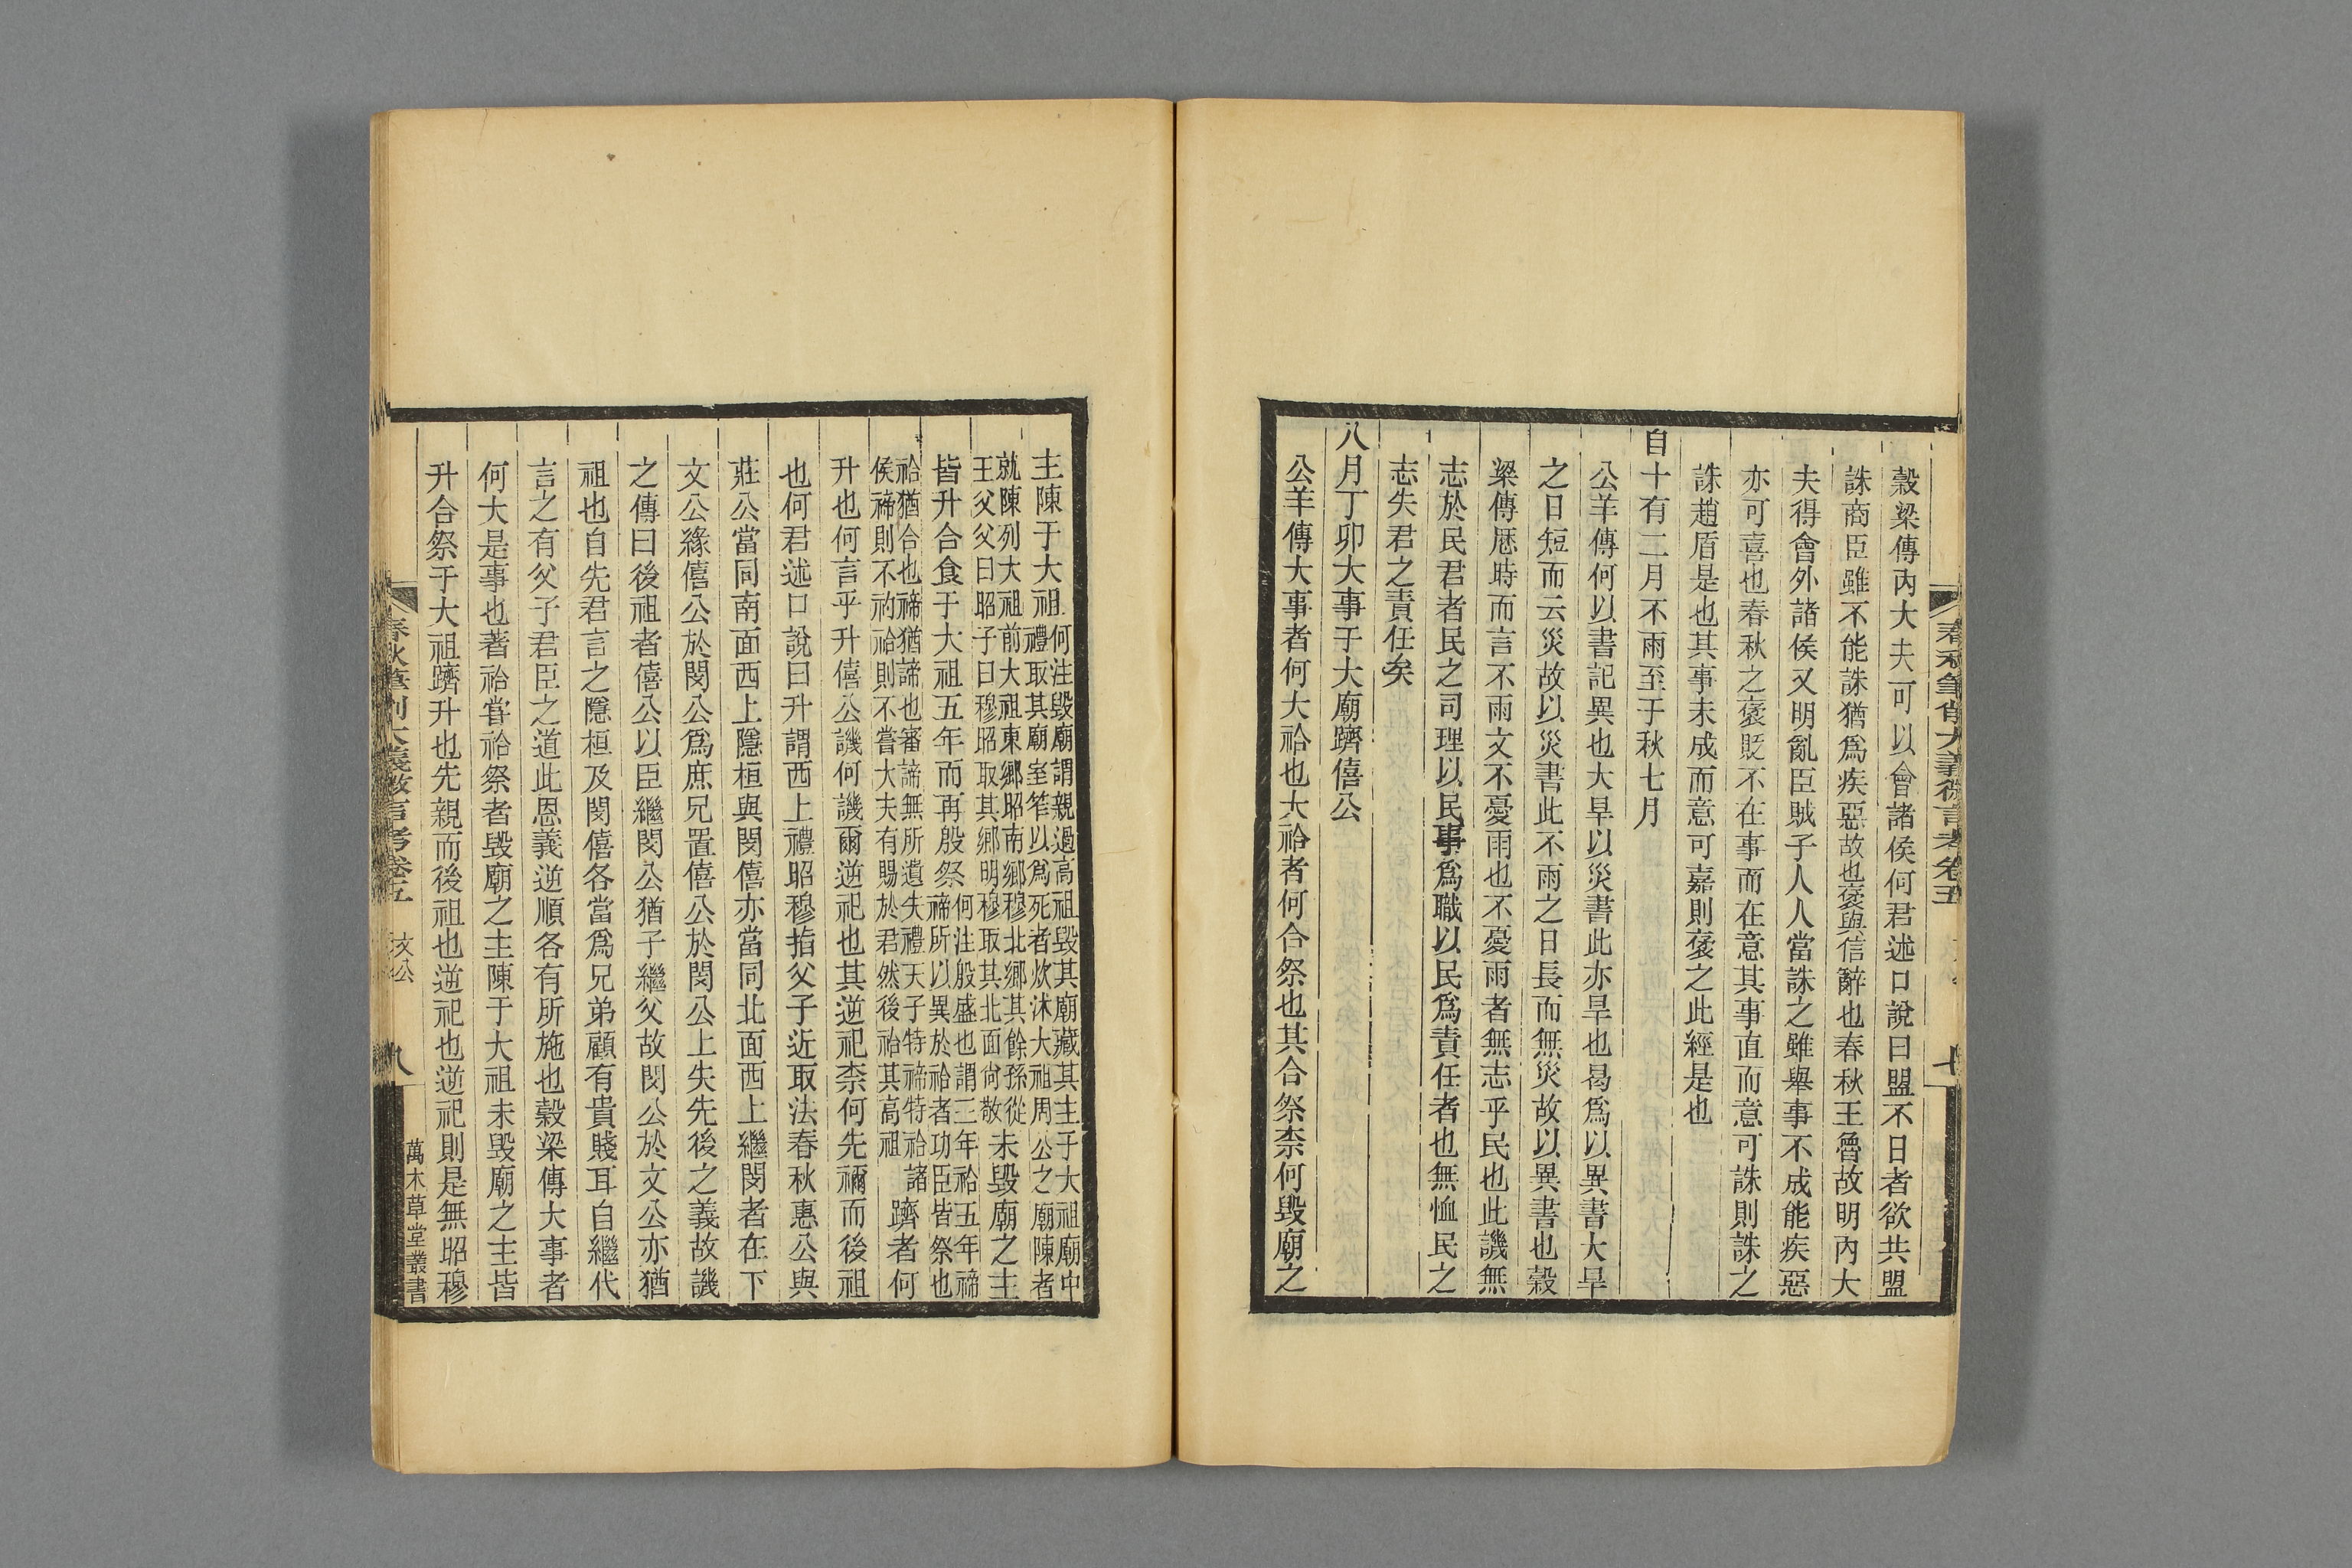 春秋筆削大義微言考卷五
七
穀梁傳內大夫可以會諸侯何君述口說曰盟不日者欲共盟
誅商臣雖不能誅猶爲疾惡故也襃與信辭也春秋王魯故明內大
夫得會外諸侯又明亂臣賊子人人當誅之雖舉事不成能疾惡
亦可喜也春秋之襃貶不在事而在意其事直而意可誅則誅之
誅趙盾是也其事未成而意可嘉則襃之此經是也
自十有二月不雨至于秋七月
公羊傳何以書記異也大旱以災書此亦旱也曷爲以異書大旱
之日短而云災故以災書此不雨之日長而無災故以異書也穀
梁傳歷時而言不雨文不憂雨也不憂雨者無志乎民也此譏無
志於民君者民之司理以民事爲職以民爲責任者也無恤民之
志失君之責任矣
八月丁卯大事于大廟躋僖公
公羊傳大事者何大祫也大祫者何合祭也其合祭柰何毀廟之
主陳于大祖何注毀廟謂親過高祖毀其廟藏其主于大祖廟中
禮取其廟室笮以爲死者炊沐大祖周公之廟陳者
就陳列大祖前大祖東鄉昭南鄉穆北鄉其餘孫從
王父父曰昭子曰穆昭取其鄉明穆取其北面尚敬未毀廟之主
皆升合食于大祖五年而再殷祭何注殷盛也謂三年祫五年禘
禘所以異於祫者功臣皆祭也
祫猶合也禘猶諦也審諦無所遺失禮天子特禘特祫諸
侯禘則不礿祫則不嘗大夫有賜於君然後祫其高祖躋者何
升也何言乎升僖公譏何譏爾逆祀也其逆祀柰何先禰而後祖
也何君述口說曰升謂西上禮昭穆指父子近取法春秋惠公與
莊公當同南面西上隱桓與閔僖亦當同北面西上繼閔者在下
文公緣僖公於閔公爲庶兄置僖公於閔公上失先後之義故譏
之傳曰後祖者僖公以臣繼閔公猶子繼父故閔公於文公亦猶
祖也自先君言之隱桓及閔僖各當爲兄弟顧有貴賤耳自繼代
言之有父子君臣之道此恩義逆順各有所施也穀梁傳大事者
何大是事也著祫嘗祫祭者毀廟之主陳于大祖未毀廟之主皆
升合祭于大祖躋升也先親而後祖也逆祀也逆祀則是無昭穆
春秋筆削大義微言考卷五 文公 八
萬木草堂叢書